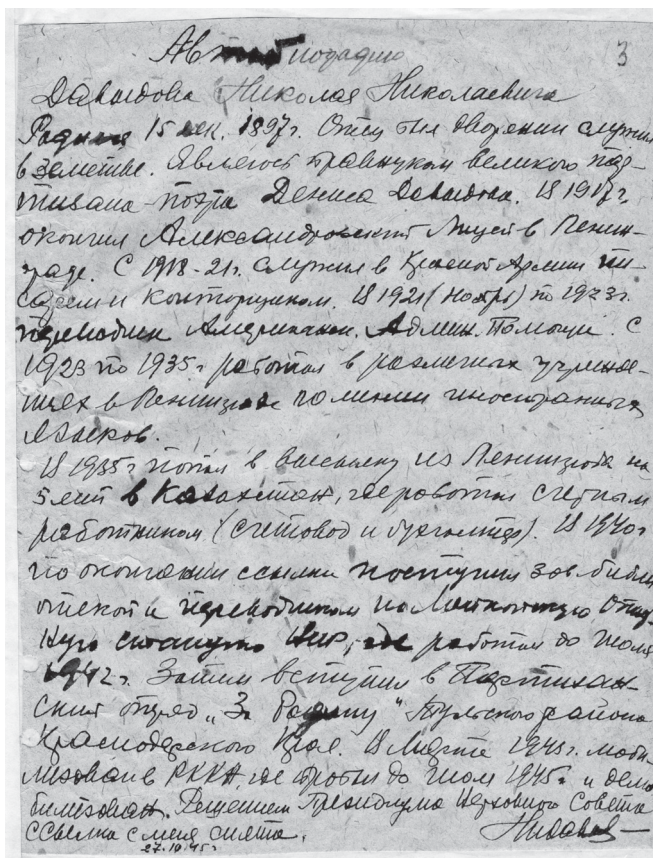 Автобиография 3
Давыдова Николая Николаевича
Родился 15 дек. 1897 г. Отец был дворянин служил
в земстве. Являюсь правнуком великого пар-
тизана-поэта Дениса Давыдова. В 1917 г.
окончил Александровский Лицей в Ленин-
граде. С 1918-21 г. служил в Красной Армии пи-
сарем и конторщиком. В 1921 (Ноябрь) по 1923 г.
переводчик Американ. Админ. Помощи. С
1923 по 1935 г. работал в различных учрежде-
ниях в Ленинграде по линии иностранных
языков.
В 1935 г. попал в высылку из Ленинграда на
5 лет в Казахстан, где работал счетным
работником (счетовод и бухгалтер). В 1940 г.
по окончании ссылки поступил зав. библи-
отекой и переводчиком на Майкопскую Опыт-
ную станцию ВИР, где работал до июля
1942 г. Затем вступил в Партизан-
ский отряд „За Родину" Тульского района
Краснодарского Края. В Марте 1943 г. моби-
лизован в РККА, где пробыл до июля 1945 г. и демо-
билизован. Решением Президиума Верховного Совета
ссылка с меня снята.
27.10.45 г.